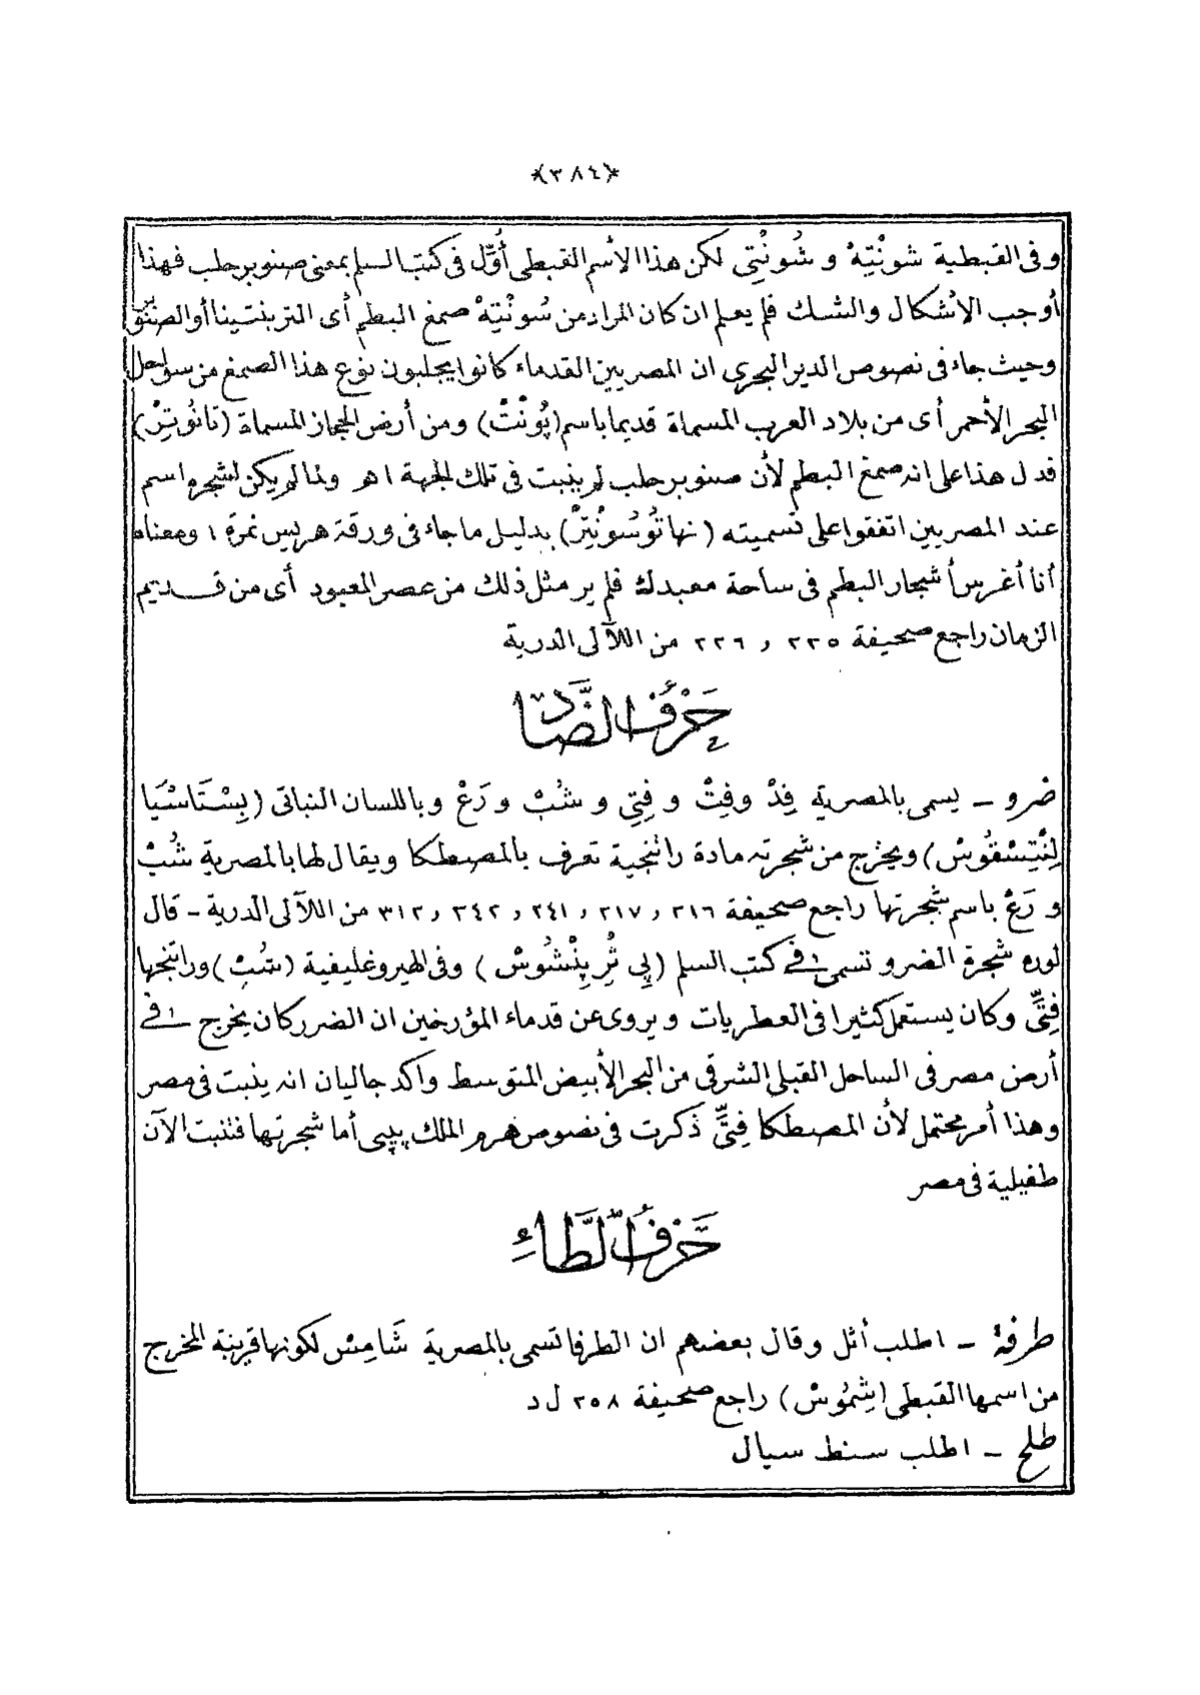 ﴿٣٨٤﴾
وفى القبطية شونْتِهْ و شُونْتِى لكن هذا الاسم القبطى أُوّل فى كتب السلم بمعنى صنوبر حلب فهذا
أوجب الاشكال والشك فلم يعلم ان كان المراد من سُونْتِهْ صمغ البطم أى التربنتينا أو الصنوبر
وحيث جاء فى نصوص الدير البحرى ان المصريين القدماء كانوا يجلبون نوع هذا الصمغ من سواحل
البحر الأحمر أى من بلاد العرب المسماة قديما باسم (پُونْتْ) ومن أرض الحجاز المسماة (تانُوتِرْ)
فدل هذا على انه صمغ البطم لأن صنوبر حلب لم ينبت فى تلك الجهة اهـ ولما لم يكن لشجره اسم
عند المصريين اتفقوا على تسميته (نهاتُوسُونْتِرْ) بدليل ما جاء فى ورقة هريس نمرة ١ ومعناه
أنا أغرس أشجار البطم فى ساحة معبدك فلم ير مثل ذلك من عصر المعبود أى من قديم
الزمان راجع صحيفة ٢٢٥ و ٢٢٦ من اللآلى الدرية
حَرْفُ الضَّاد
ضرو - يسمى بالمصرية فِدْ وفِتْ و فِتِى و شُبْ و رَعْ وباللسان النباتى (بِسْتَاسْيَا
لِنْتِسْقُوسْ) ويخرج من شجرته مادة راتنجية تعرف بالمصطكا ويقال لها بالمصرية شُبْ
و رَعْ باسم شجرتها راجع صحيفة ٢١٦ و ٢١٧ و ٢٤١ و ٢٤٢ و ٣١٢ من اللآلى الدرية - قال
لوره شجرة الضرو تسمى فى كتب السلم (پِى ثْرِپِنْشُوسْ) وفى الهيروغليفية (شُبْ) وراتنجها
فِتِّى وكان يستعمل كثيرا فى العطريات ويروى عن قدماء المؤرخين ان الضرو كان يخرج فى
أرض مصر فى الساحل القبلى الشرقى من البحر الأبيض المتوسط وأكد جاليان انه ينبت فى مصر
وهذا أمر محتمل لأن المصطكا فِتِّى ذكرت فى نصوص هرم الملك پيپى أما شجرتها فتنبت الآن
طفيلية فى مصر
حَرْفُ الطَّاءِ
طرفة - اطلب أثل وقال بعضهم ان الطرفا تسمى بالمصرية شَامِسْ لكونها قريبة المخرج
من اسمها القبطى (شِمُوسْ) راجع صحيفة ٢٥٨ ل د
طلح - اطلب سنط سيال